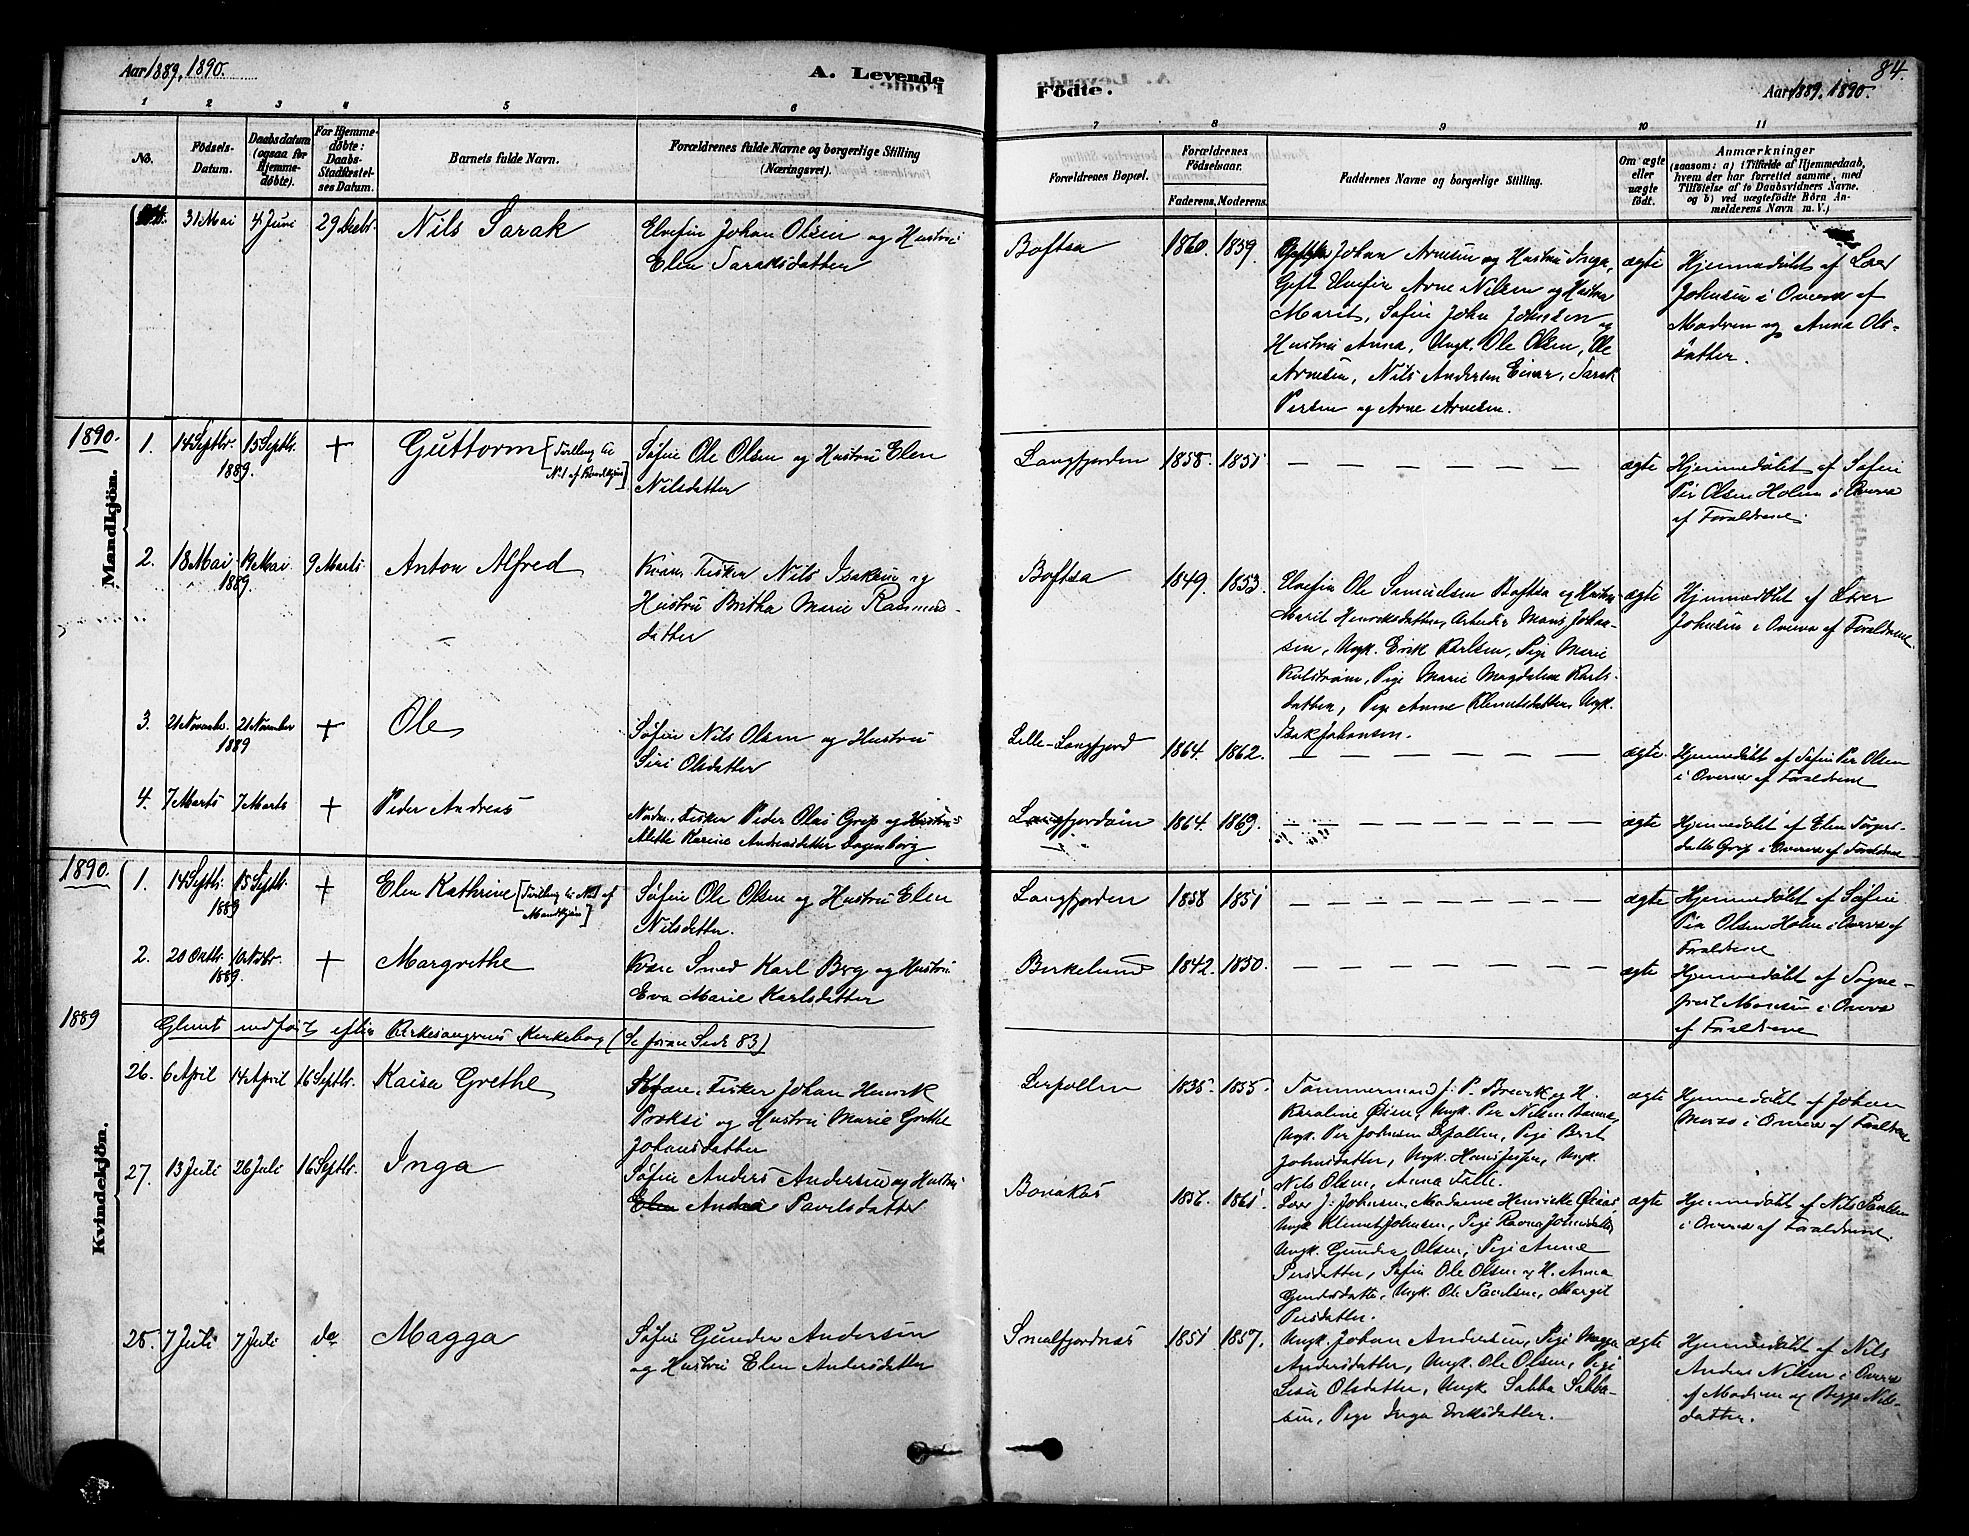 Aar 1889, 1890.
A. Levende
Fødte.
Aar 1889, 1890.
84.
1 2 3 4 5 6 7 8 9 10 11
No.
Fødsels-
Datum.
Daabsdatum
(ogsaa for
Hjemme-
døbte).
For Hjemme-
døbte:
Daabs-
Stadfæstel-
ses Datum.
Barnets fulde Navn.
Forældrenes fulde Navne og borgerlige Stilling
(Næringsvei).
Forældrenes Bopæl.
Forældrenes
Fødselsaar.
Faderens. Moderens.
Faddernes Navne og borgerlige Stilling.
Om ægte
eller
uægte
født.
Anmærkninger
(saasom: a) i Tilfælde af Hjemmedaab,
hvem der har forrettet samme, med
Tilføielse af to Daabsvidners Navne.
og b) ved uægtefødte Børn An-
melderens Navn m. V.)
Mandkjøn.
31 Mai
4 Juni
29 Decbr.
Nils Sarak
Elvefin Johan Olsen og Hustru
Elen Saraksdatter
Boftsa
1860. 1859.
Johan Arnesen og Hustru Inga,
Gift Elvefin Arne Nilsen og Hustru
Marit, Søfin John Johnsen og
Hustru Anna, Ungk. Ole Olsen, Ole
Arnesen, Nils Andersen Einar, Sarak
Persen og Arne Arnesen.
ægte
Hjemmedøbt af Lærer
Johnsen i Overvær af
Madren og Anna Ols-
datter.
1890.
1.
14 Septbr.
1889.
15 Septbr.
+
Guttorm [Tvilling til
No. 1 af Kvindkjøn]
Søfin Ole Olsen og Hustru Elen
Nilsdatter
Langfjorden
1858. 1851
— — — — — — —
ægte
Hjemmedøbt af Søfin
Per Olsen Holm i Overvær
af Forældrene.
2.
18 Mai
1889
19 Mai
9 Marts
Anton Alfred
Kvæn, Fisker Nils Isaksen og
Hustru Britha Marie Rasmus-
datter
Boftsa
1849. 1853.
Elvefin Ole Samuelsen Boftsa og Hustru
Marit Henriksdatter, Arbeider Mons Johan-
sen, Ungk. Erik Karlsen, Pige Marie
Kulstrøm, Pige Marie Magdalene Karls-
datter, Pige Anne Klemetsdatter, Ungk.
Isak Johansen.
ægte
Hjemmedøbt af Lærer
Johnsen i Overvær af Forældrene
3.
21 Novembr.
1889
21 November
+
Ole
Søfin Nils Olsen og Hustru
Siri Olsdatter
Lille-Langfjord
1864. 1862.
— — — — — — —
ægte
Hjemmedøbt af Søfin Per Olsen
i Overvær af Forældrene
4.
7 Marts
7 Marts
+
Peder Andreas
Nordm. Fisker Peder Olai Grip og Hustru
Alette Karine Andreasdatter Dagenborg
Langfjordøin
1864. 1869.
— — — — — — —
ægte
Hjemmedøbt af Elen Torgers-
datter Grip i Overvær af Forældrene
1890.
Kvindekjøn.
1.
14 Septbr.
1889
15 Septbr.
+
Elen Kathrine [Tvilling til No. 1 af
Mandkjøn]
Søfin Ole Olsen og Hustru Elen
Nilsdatter.
Langfjorden
1858 1851
— — — — — — —
ægte
Hjemmedøbt af Søfin
Per Olsen Holm i Overvær af
Forældrene
2.
20 Octbr.
1889.
10 Novbr.
+
Margrethe
Kvæn Smed Karl Berg og Hustru
Eva Marie Karlsdatter
Birkelund
1842. 1850.
— — — — — — —
ægte
Hjemmedøbt af Sogne-
prest Moresen i Overvær
af Forældrene
1889
Glemt indført efter Kirkesangerens Kirkebog (Se foran Side 83)
26.
6 April
14 April
16 Septbr.
Kaisa Grethe
Kvæn. Fisker Johan Henrik
Proksi og Hustru Marie Grethe
Johansdatter
Leerpollen
1835. 1855.
Tømmermand J. P. Brevik og H.
Karoline Øien, Ungk. Per Nilsen Banne,
Ungk. Per Johnsen Leerpollen, Pige Berit
Johnsdatter, Ungk. Hans Jessen, Ungk.
Nils Olsen, Anna Falle.
ægte
Hjemmedøbt af Johan
i Overvær af Forældrene
27.
13 Juli
26 Juli
16 Septbr.
Inga
Søfin Anders Andersen og Hustru
Elen Andrea Pavelsdatter
Bonakas
1856. 1861.
Lærer J. Johnsen, Madamme Henrikke
Ungk. Klemet Johnsen, Pige Ravna Johnsdatter
Ungk. Gunder Olsen, Pige Anne
Persdatter, Søfin Ole Olsen og H. Anna
Gundersdatter, Ungk. Ole Pavelsen, Margit
Persdatter.
ægte
Hjemmedøbt af Nils Paulsen
i Overvær af Forældrene.
25.
7 Juli
7 Juli
do
Magga
Søfin Gunder Andersen
og Hustru Elen Andersdatter
Smalfjordnæs
1851 1857.
Ungk. Johan Andersen, Pige Magga
Andersdatter, Ungk. Ole Olsen, Pige
Lisa Olsdatter, Ungk. Sabba Sabba-
sen, Pige Inga Eriksdatter.
ægte
Hjemmedøbt af Nils
Anders Nilsen i Overvær
af Madren og Bigga Nils-
datter.